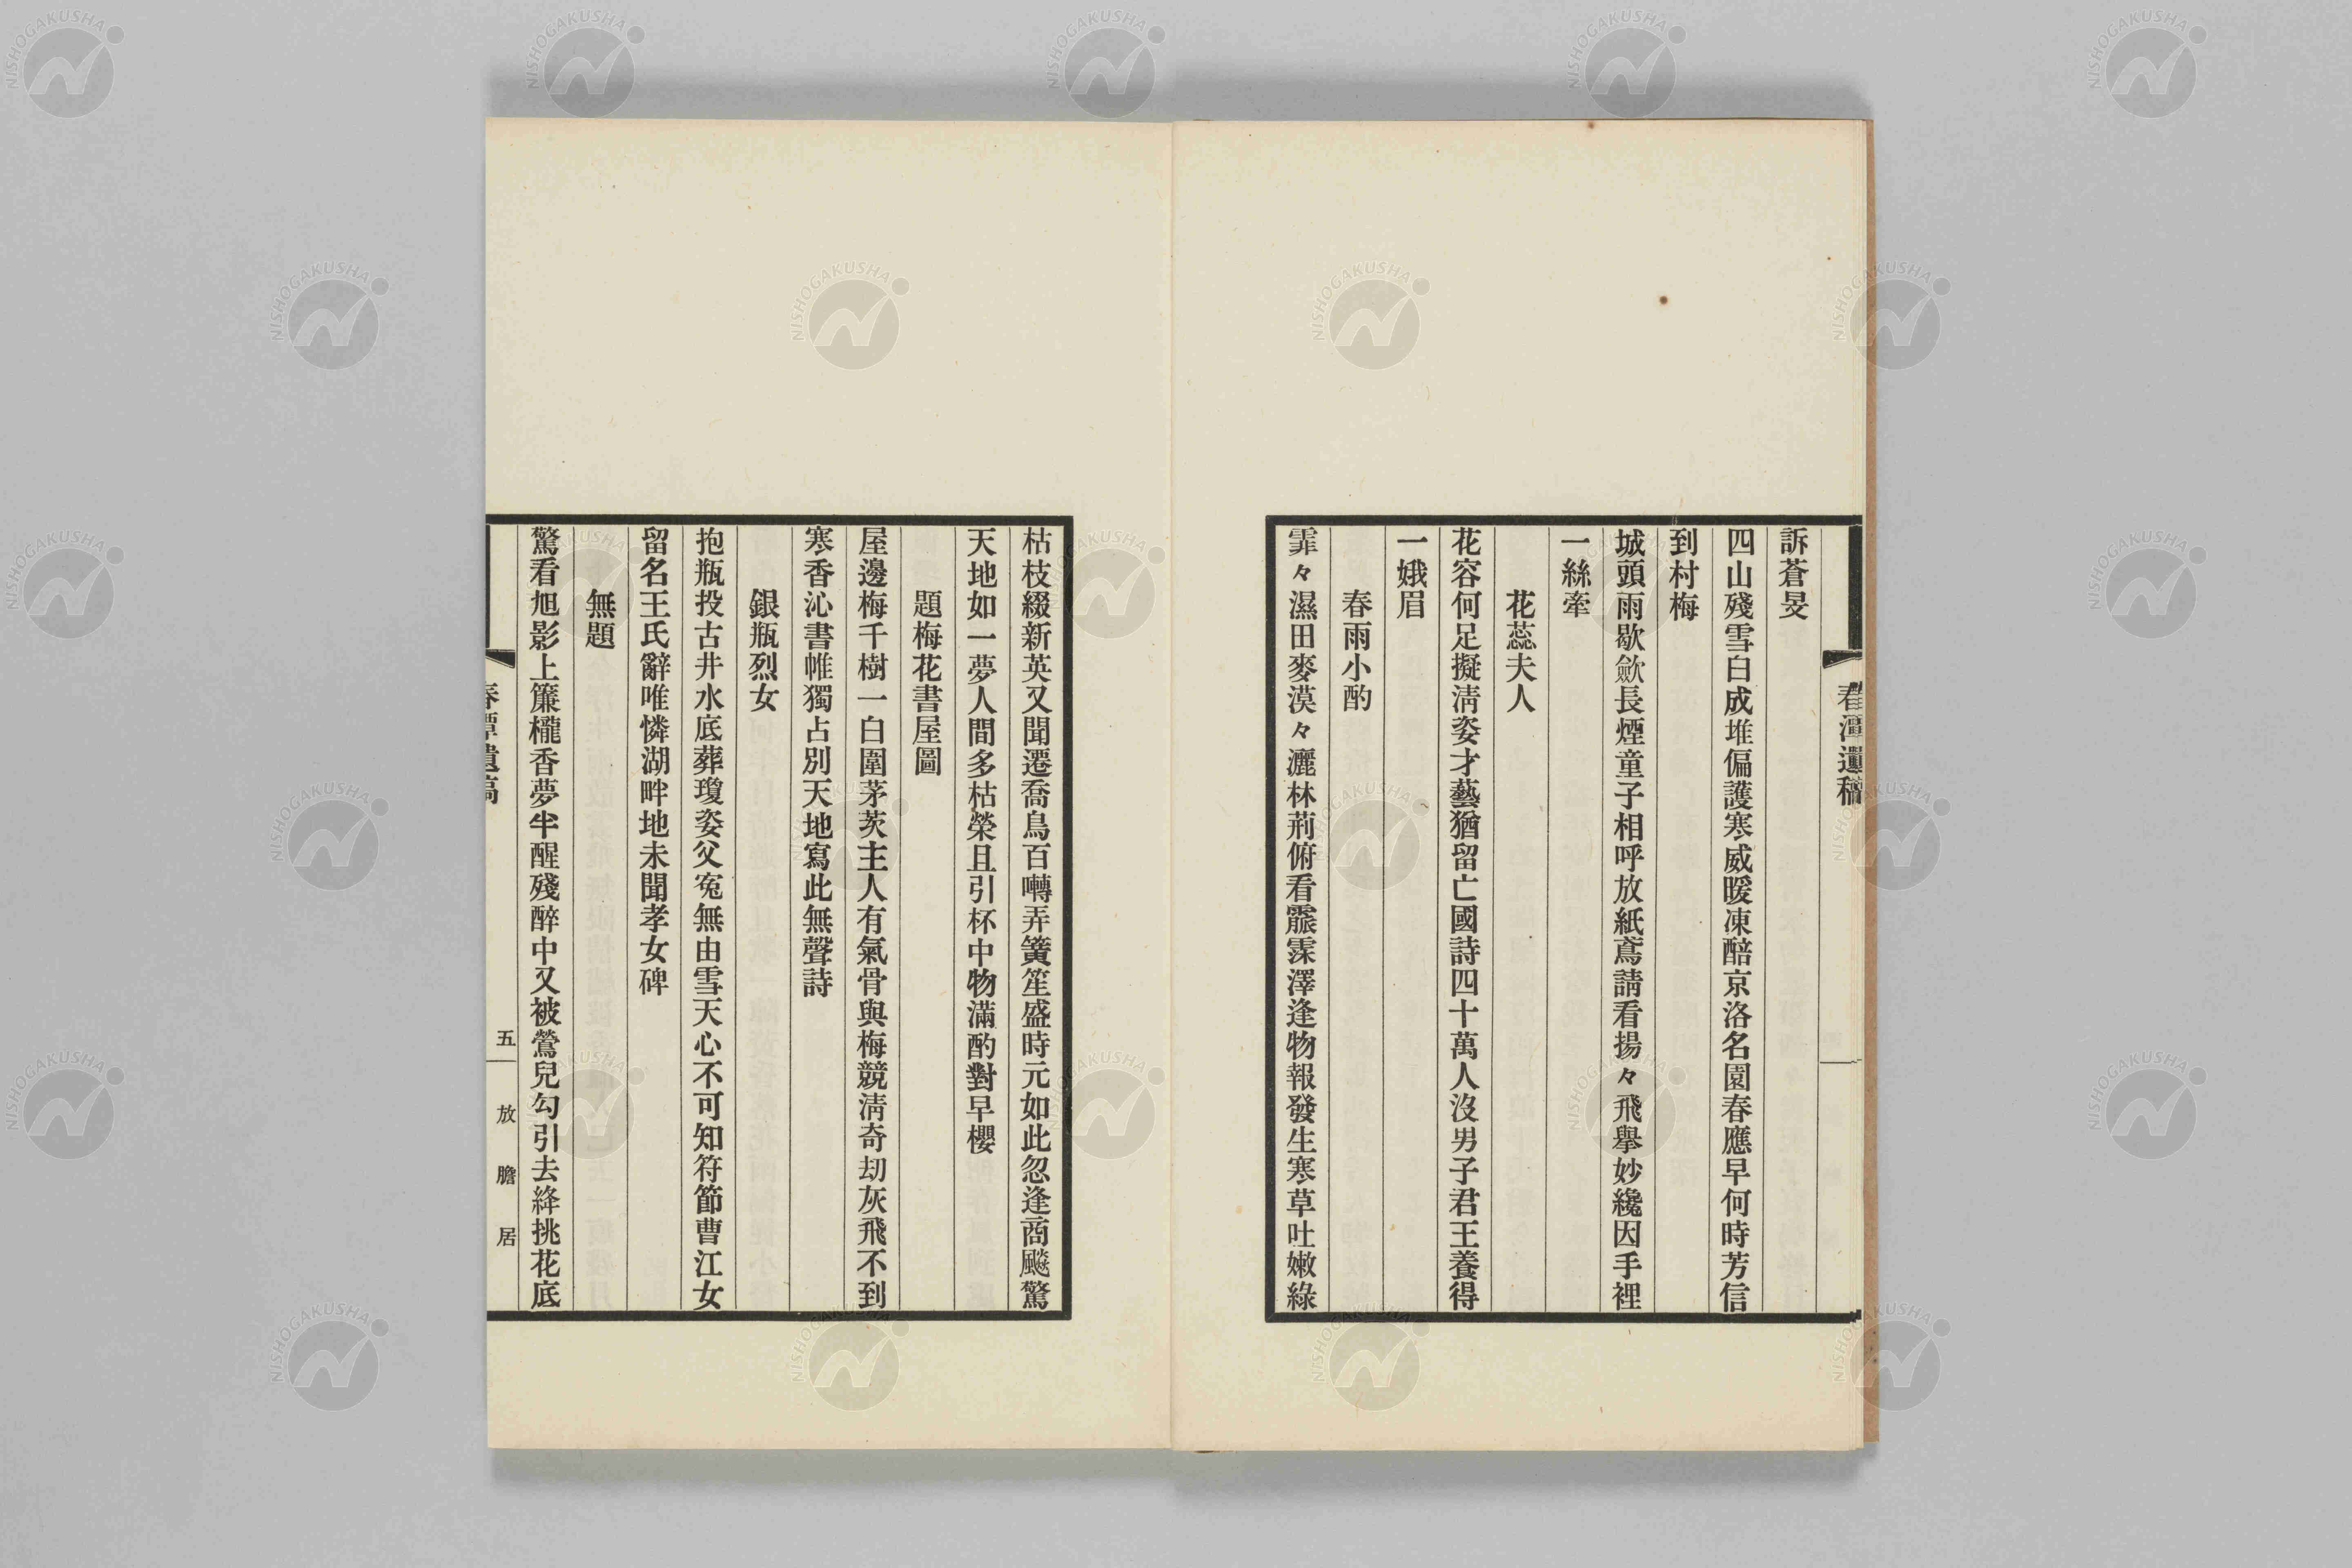 春潭遺稿
訴蒼旻
四山殘雪白成堆偏護寒威暖凍醅京洛名園春應早何時芳信
到村梅
城頭雨歇歛長煙童子相呼放紙鳶請看揚々飛擧妙纔因手裡
一絲牽
花蕊夫人
花容何足擬淸姿才藝猶留亡國詩四十萬人沒男子君王養得
一娥眉
春雨小酌
霏々濕田麥漠々灑林荊俯看霢霂澤逢物報發生寒草吐嫩綠
枯枝綴新英又聞遷喬鳥百囀弄簧笙盛時元如此忽逢商飈驚
天地如一夢人間多枯榮且引杯中物滿酌對早櫻
題梅花書屋圖
屋邊梅千樹一白圍茅茨主人有氣骨與梅競淸奇刧灰飛不到
寒香沁書帷獨占別天地寫此無聲詩
銀瓶烈女
抱瓶投古井水底葬瓊姿父寃無由雪天心不可知符節曹江女
留名王氏辭唯憐湖畔地未聞孝女碑
無題
驚看旭影上簾櫳香夢半醒殘醉中又被鶯兒勾引去絳挑花底
春潭遺稿
五
放膽居
NISHOGAKUSHA